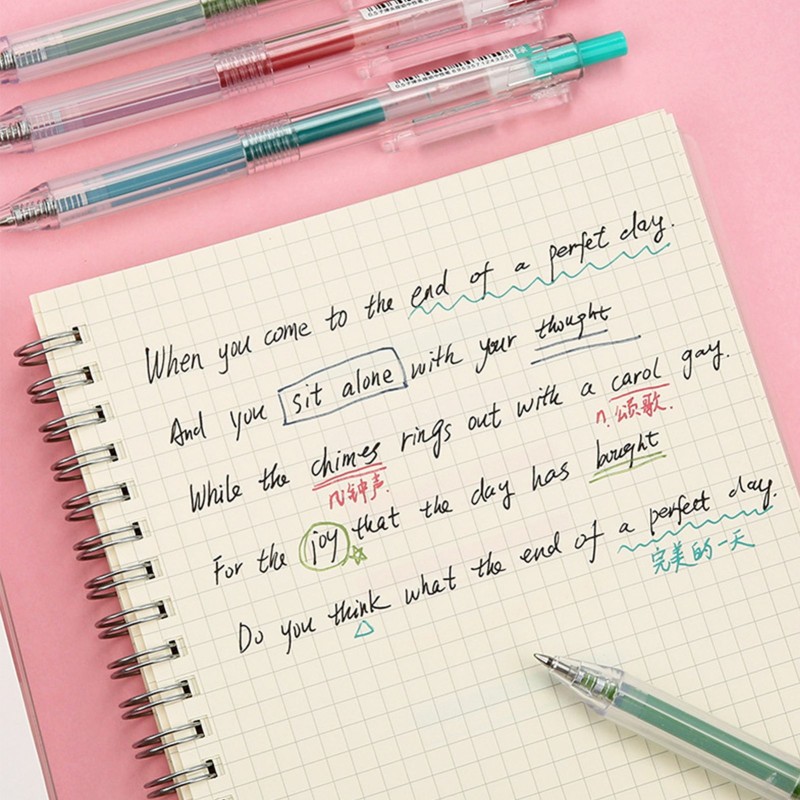 When you come to the end of a perfet day.
And you sit alone with your thought
While the chimes rings out with a carol gay.
n. 钟声.
n. 颂歌.
For the joy that the day has bought
Do you think what the end of a perfect day.
完美的一天